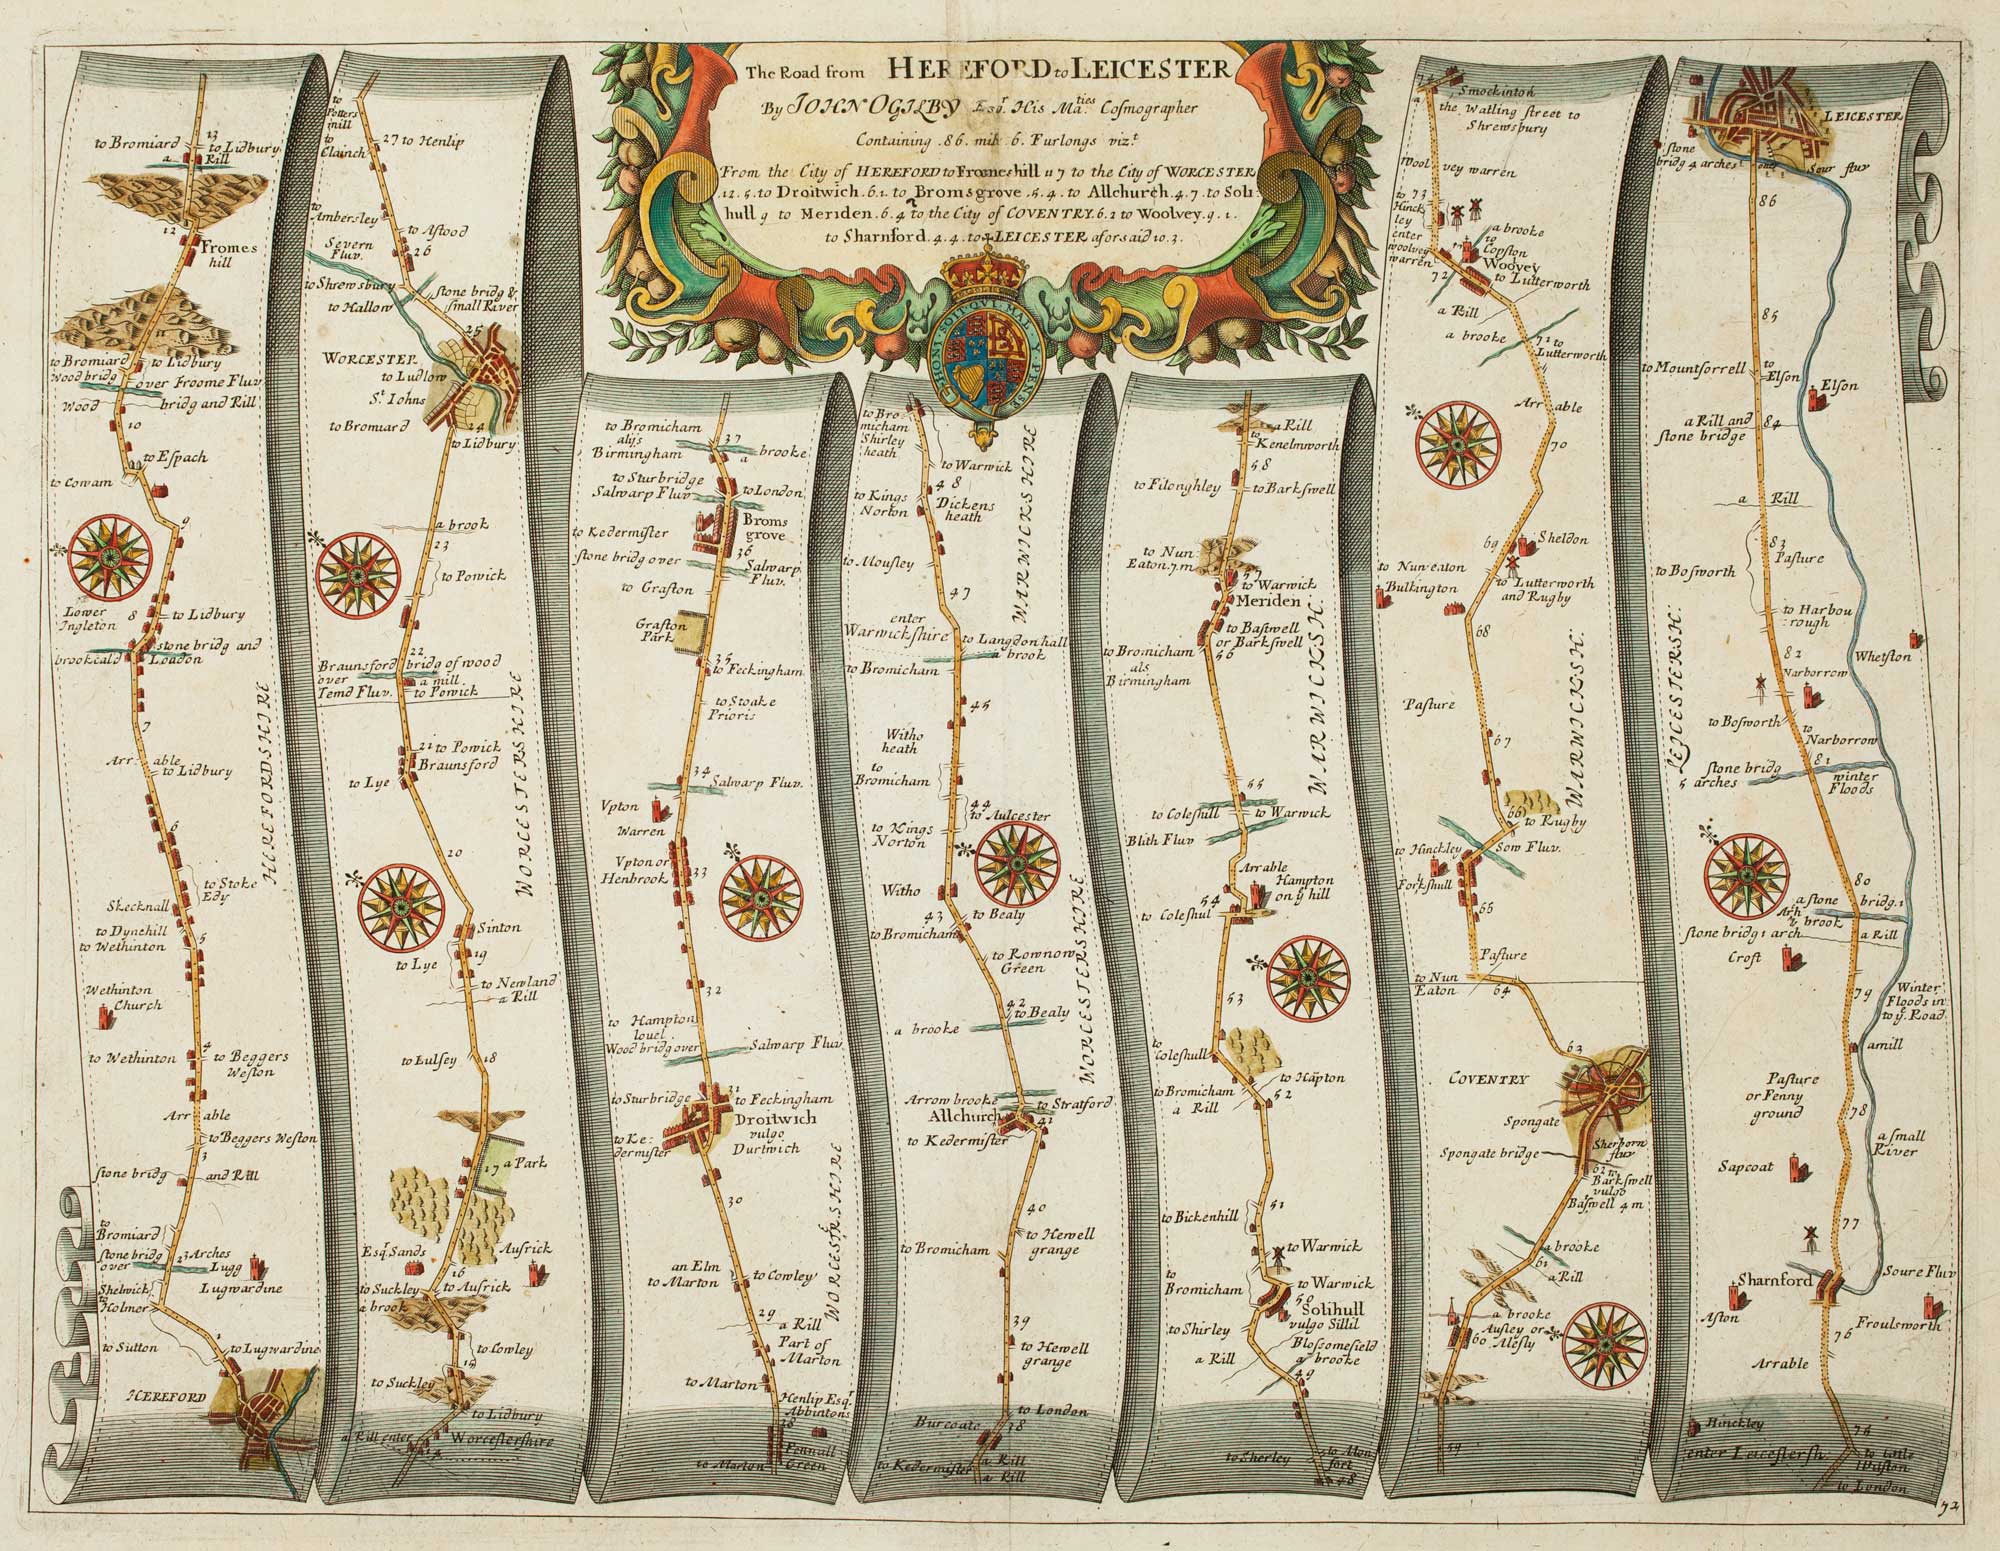 The Road from HEREFORD to LEICESTER
By IOHN OGILBY Esqr. His Maties. Cosmographer
Containing .86. mile .6. Furlongs vizt
From the City of HEREFORD to Fromeshill 11 7 to the City of WORCESTER
.12.5. to Droitwich.6.1. to Bromsgrove .5.4. to Allchurch.4.7. to Soli:
hull 9 to Meriden.6.4 to the City of COVENTRY.6.2 to Woolvey.9.1.
to Sharnford.4.4. to LEICESTER aforsaid 10.3.
HONI·SOIT·QVI·MAL·Y·PENSE
to Bromiard
13
to Lidbury
a Rill
12
Fromes
hill
11
to Bromiard
to Lidbury
Wood bridg
over Froome Fluv.
Wood
bridg and Rill
10
to Espach
to Cowarn
9
Lower
Ingleton
8
to Lidbury
stone bridg and
brook cald
Loudon
7
Arr able
to Lidbury
HEREFORDSHIRE
6
to Stoke
Edy
Skecknall
to Dynehill
5
to Wethinton
Wethinton
Church
4
to Wethinton
to Beggers
Weston
Arr able
to Beggers Weston
3
stone bridg
and Rill
to
Bromiard
stone bridg
2
3 Arches
over
Lugg
Shelwick
Lugwardine
to
Holmer
1
to Sutton
to Lugwardine
HEREFORD
to
Potters
mill
to
Clainch
27 to Henlip
to
Ambersley
to Astood
Severn
Fluv.
26
to Shrewsbury
stone bridg &
small River
to Hallow
25
WORCESTER
to Ludlow
St. Iohns
24
to Bromiard
to Lidbury
a brook
23
to Powick
22
Braunsford
bridg of wood
over
a mill
Temd Fluv.
to Powick
WORCESTERSHIRE
21 to Powick
Braunsford
to Lye
20
Sinton
19
to Lye
to Newland
a Rill
to Lulsey
18
17 a Park
Esqr. Sands
Ausrick
16
to Suckley
to Ausrick
a brook
to Cowley
15
to Suckley
to Lidbury
a Rill enter
Worcestershire
14
to Bromicham
37
alijs
Birmingham
a brooke
to Sturbridge
Salwarp Fluv.
to London
Broms
grove
to Kedermister
36
stone bridg over
Salwarp
Fluv.
to Grafton
Grafton
Park
35
to Feckingham
to Stoake
Prioris
34
Salwarp Fluv.
Vpton
Warren
Vpton or
Henbrook
33
32
to Hampton
lovel
Wood bridg over
Salwarp Fluv.
31
to Sturbridge
to Feckingham
Droitwich
vulgo
Durtwich
to Ke:
dermister
WORCESTERSHIRE
30
an Elm
to Marton
to Cowley
29
a Rill
Part of
Marton
to Marton
Henlip Esqr.
Abbintons
28
Fennall
Green
to Marton
to Bro:
micham
Shirley
heath
WARWICKSHIRE
to Warwick
48
to Kings
Norton
Dickens
heath
to Mousley
47
enter
Warwickshire
to Langdon hall
a brook
to Bromicham
45
Witho
heath
to
Bromicham
44
to Aulcester
to Kings
Norton
Witho
43
to Bealy
to Bromicham
to Rownow
Green
42
to Bealy
a brooke
WORCESTERSHIRE
Arrow brooke
to Stratford
Allchurch
41
to Kedermister
40
to Hewell
grange
to Bromicham
39
to Hewell
grange
to London
Burcoate
38
a Rill
to Kedermister
a Rill
a Rill
to
Kenelmworth
58
to Filonghley
to Barkswell
to Nun
Eaton.7.m
57
to Warwick
Meriden
to Baswell
or Barkswell
to Bromicham
56
als
Birmingham
WARWICKSH:
55
to Coleshill
to Warwick
Blith Fluv
Arrable
Hampton
on ye hill
54
to Coleshul
53
to
Coleshull
to Hāpton
to Bromicham
52
a Rill
51
to Bickenhill
to Warwick
to
Bromicham
to Warwick
50
Solihull
vulgo Sillil
to Shirley
Blossomefield
a brooke
a Rill
49
to Sherley
to Mon
fort
48
74
Smockinton
the Watling street to
Shrewsbury
Wool vey warren
to 73
Hinck
ley
enter
woolvey
warren
a brooke
to
Copston
Woovey
72
to Lutterworth
a Rill
a brooke
71 to
Lutterworth
Arr able
70
69
Sheldon
to Nun eaton
Bulkington
to Lutterworth
and Rugby
68
Pasture
67
WARWICKSH:
66
to Rugby
Sow Fluv.
to Hinckley
Forkshull
65
Pasture
to Nun
Eaton
64
63
COVENTRY
Spongate
Sherborn
fluv
Spongate bridge
62
to
Barkswell
vulgo
Baswell 4 m
a brooke
61
a Rill
a brooke
Ausley or
Alesly
60
59
LEICESTER
stone
bridg 4 arches
Sour fluv
86
85
to Mountsorrell
to
Elson
Elson
a Rill and
84
stone bridge
a Rill
83
Pasture
to Bosworth
to Harbou
rough
LEICESTERSH:
82
Whetston
Narborrow
to Bosworth
to
Narborrow
81
stone bridg
5 arches
winter
Floods
80
a stone
bridg.1
Arch
brook
stone bridg 1 arch
a Rill
Croft
79
Winter
Floods in
to ye. Road
a mill
Pasture
or Fenny
ground
78
a small
River
Sapcoat
77
Sharnford
Soure Fluv
Aston
Froulsworth
76
Arrable
Hinckley
75
enter Leicestersh
to Little
Wilston
to London
72